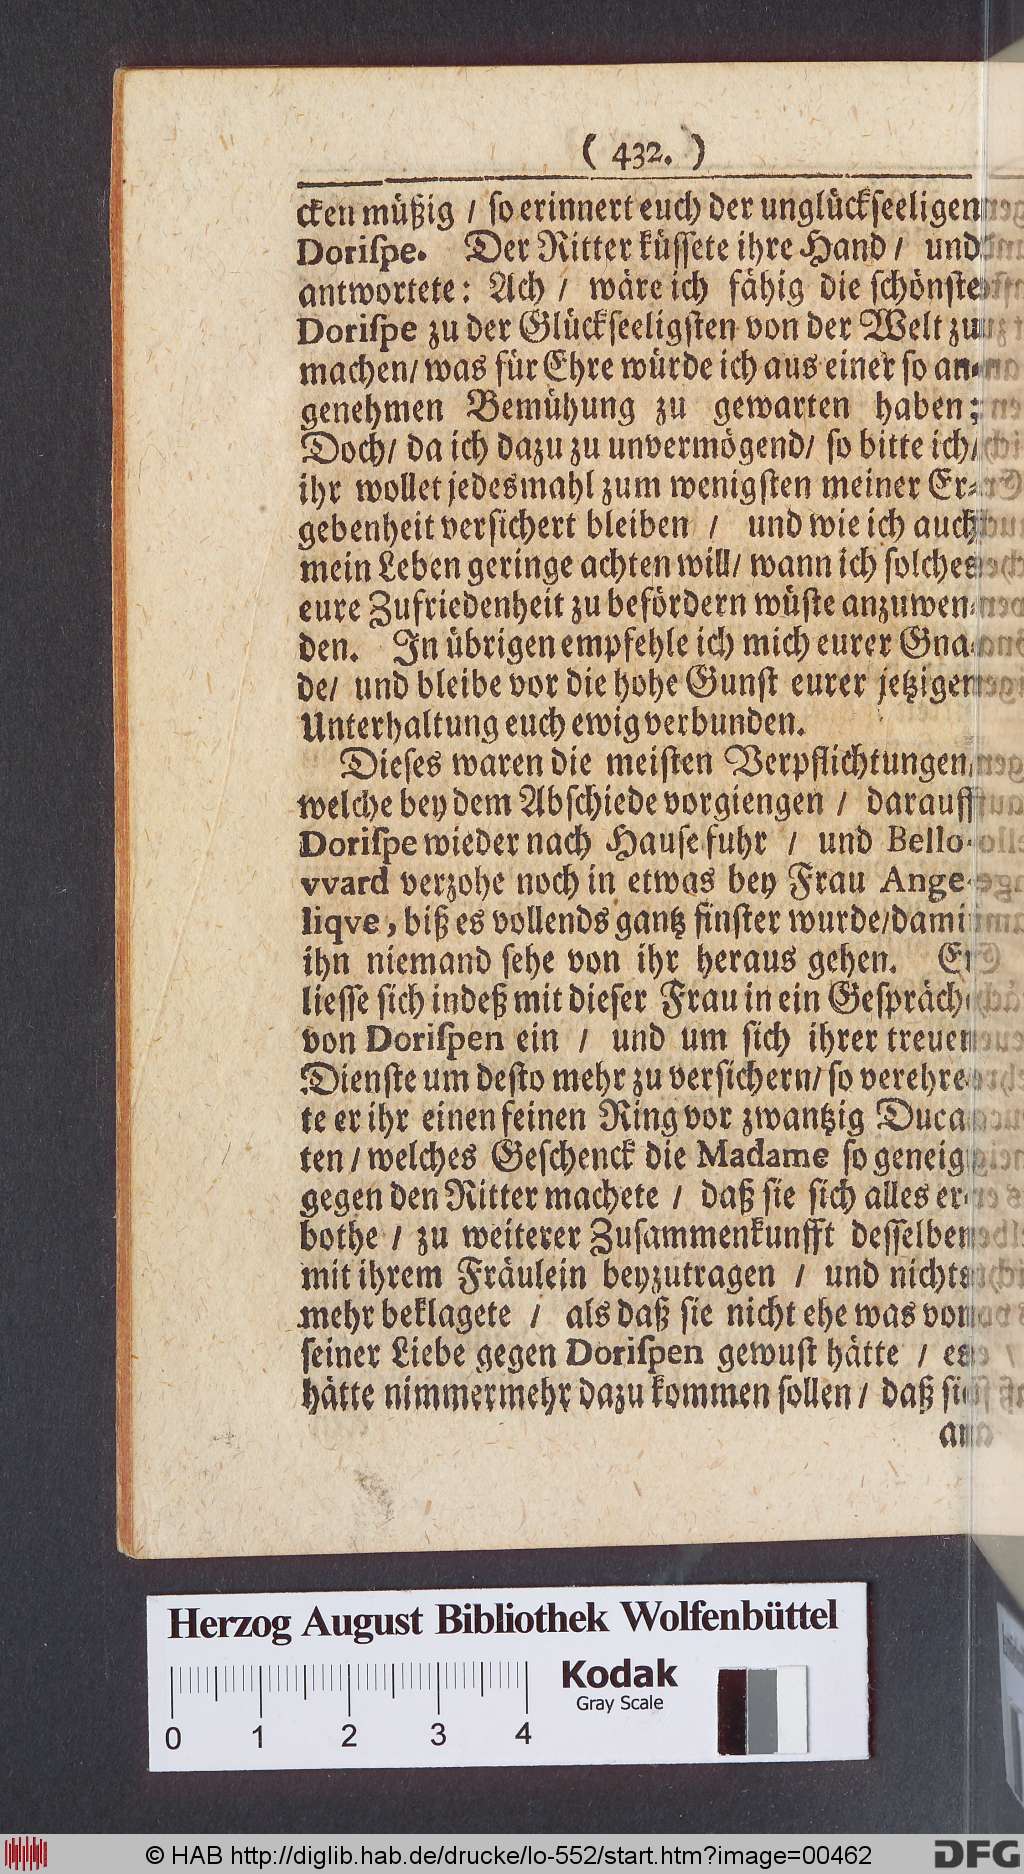 ( 432. )
cken müßig / so erinnert euch der unglückseeligen
Dorispe. Der Ritter küssete ihre Hand / und
antwortete: Ach / wäre ich fähig die schönste
Dorispe zu der Glückseeligsten von der Welt zu
machen/ was für Ehre würde ich aus einer so an-
genehmen Bemühung zu gewarten haben;
Doch/ da ich dazu zu unvermögend/ so bitte ich/
ihr wollet jedesmahl zum wenigsten meiner Er-
gebenheit versichert bleiben / und wie ich auch
mein Leben geringe achten will/ wann ich solches
eure Zufriedenheit zu befördern wüste anzuwen-
den. In übrigen empfehle ich mich eurer Gna-
de/ und bleibe vor die hohe Gunst eurer jetzigen
Unterhaltung euch ewig verbunden.
Dieses waren die meisten Verpflichtungen/
welche bey dem Abschiede vorgiengen / darauff
Dorispe wieder nach Hause fuhr / und Bello-
vvard verzohe noch in etwas bey Frau Ange-
liqve, biß es vollends gantz finster wurde/ damit
ihn niemand sehe von ihr heraus gehen. Er
liesse sich indeß mit dieser Frau in ein Gespräch
von Dorispen ein / und um sich ihrer treuen
Dienste um desto mehr zu versichern/ so verehre-
te er ihr einen feinen Ring vor zwantzig Duca-
ten / welches Geschenck die Madame so geneigt
gegen den Ritter machete / daß sie sich alles er-
bothe / zu weiterer Zusammenkunfft desselben
mit ihrem Fräulein beyzutragen / und nichts
mehr beklagete / als daß sie nicht ehe was von
seiner Liebe gegen Dorispen gewust hätte / es
hätte nimmermehr dazu kommen sollen / daß sich
Herzog August Bibliothek Wolfenbüttel
Kodak
Gray Scale
0 1 2 3 4
© HAB http://diglib.hab.de/drucke/lo-552/start.htm?image=00462
DFG